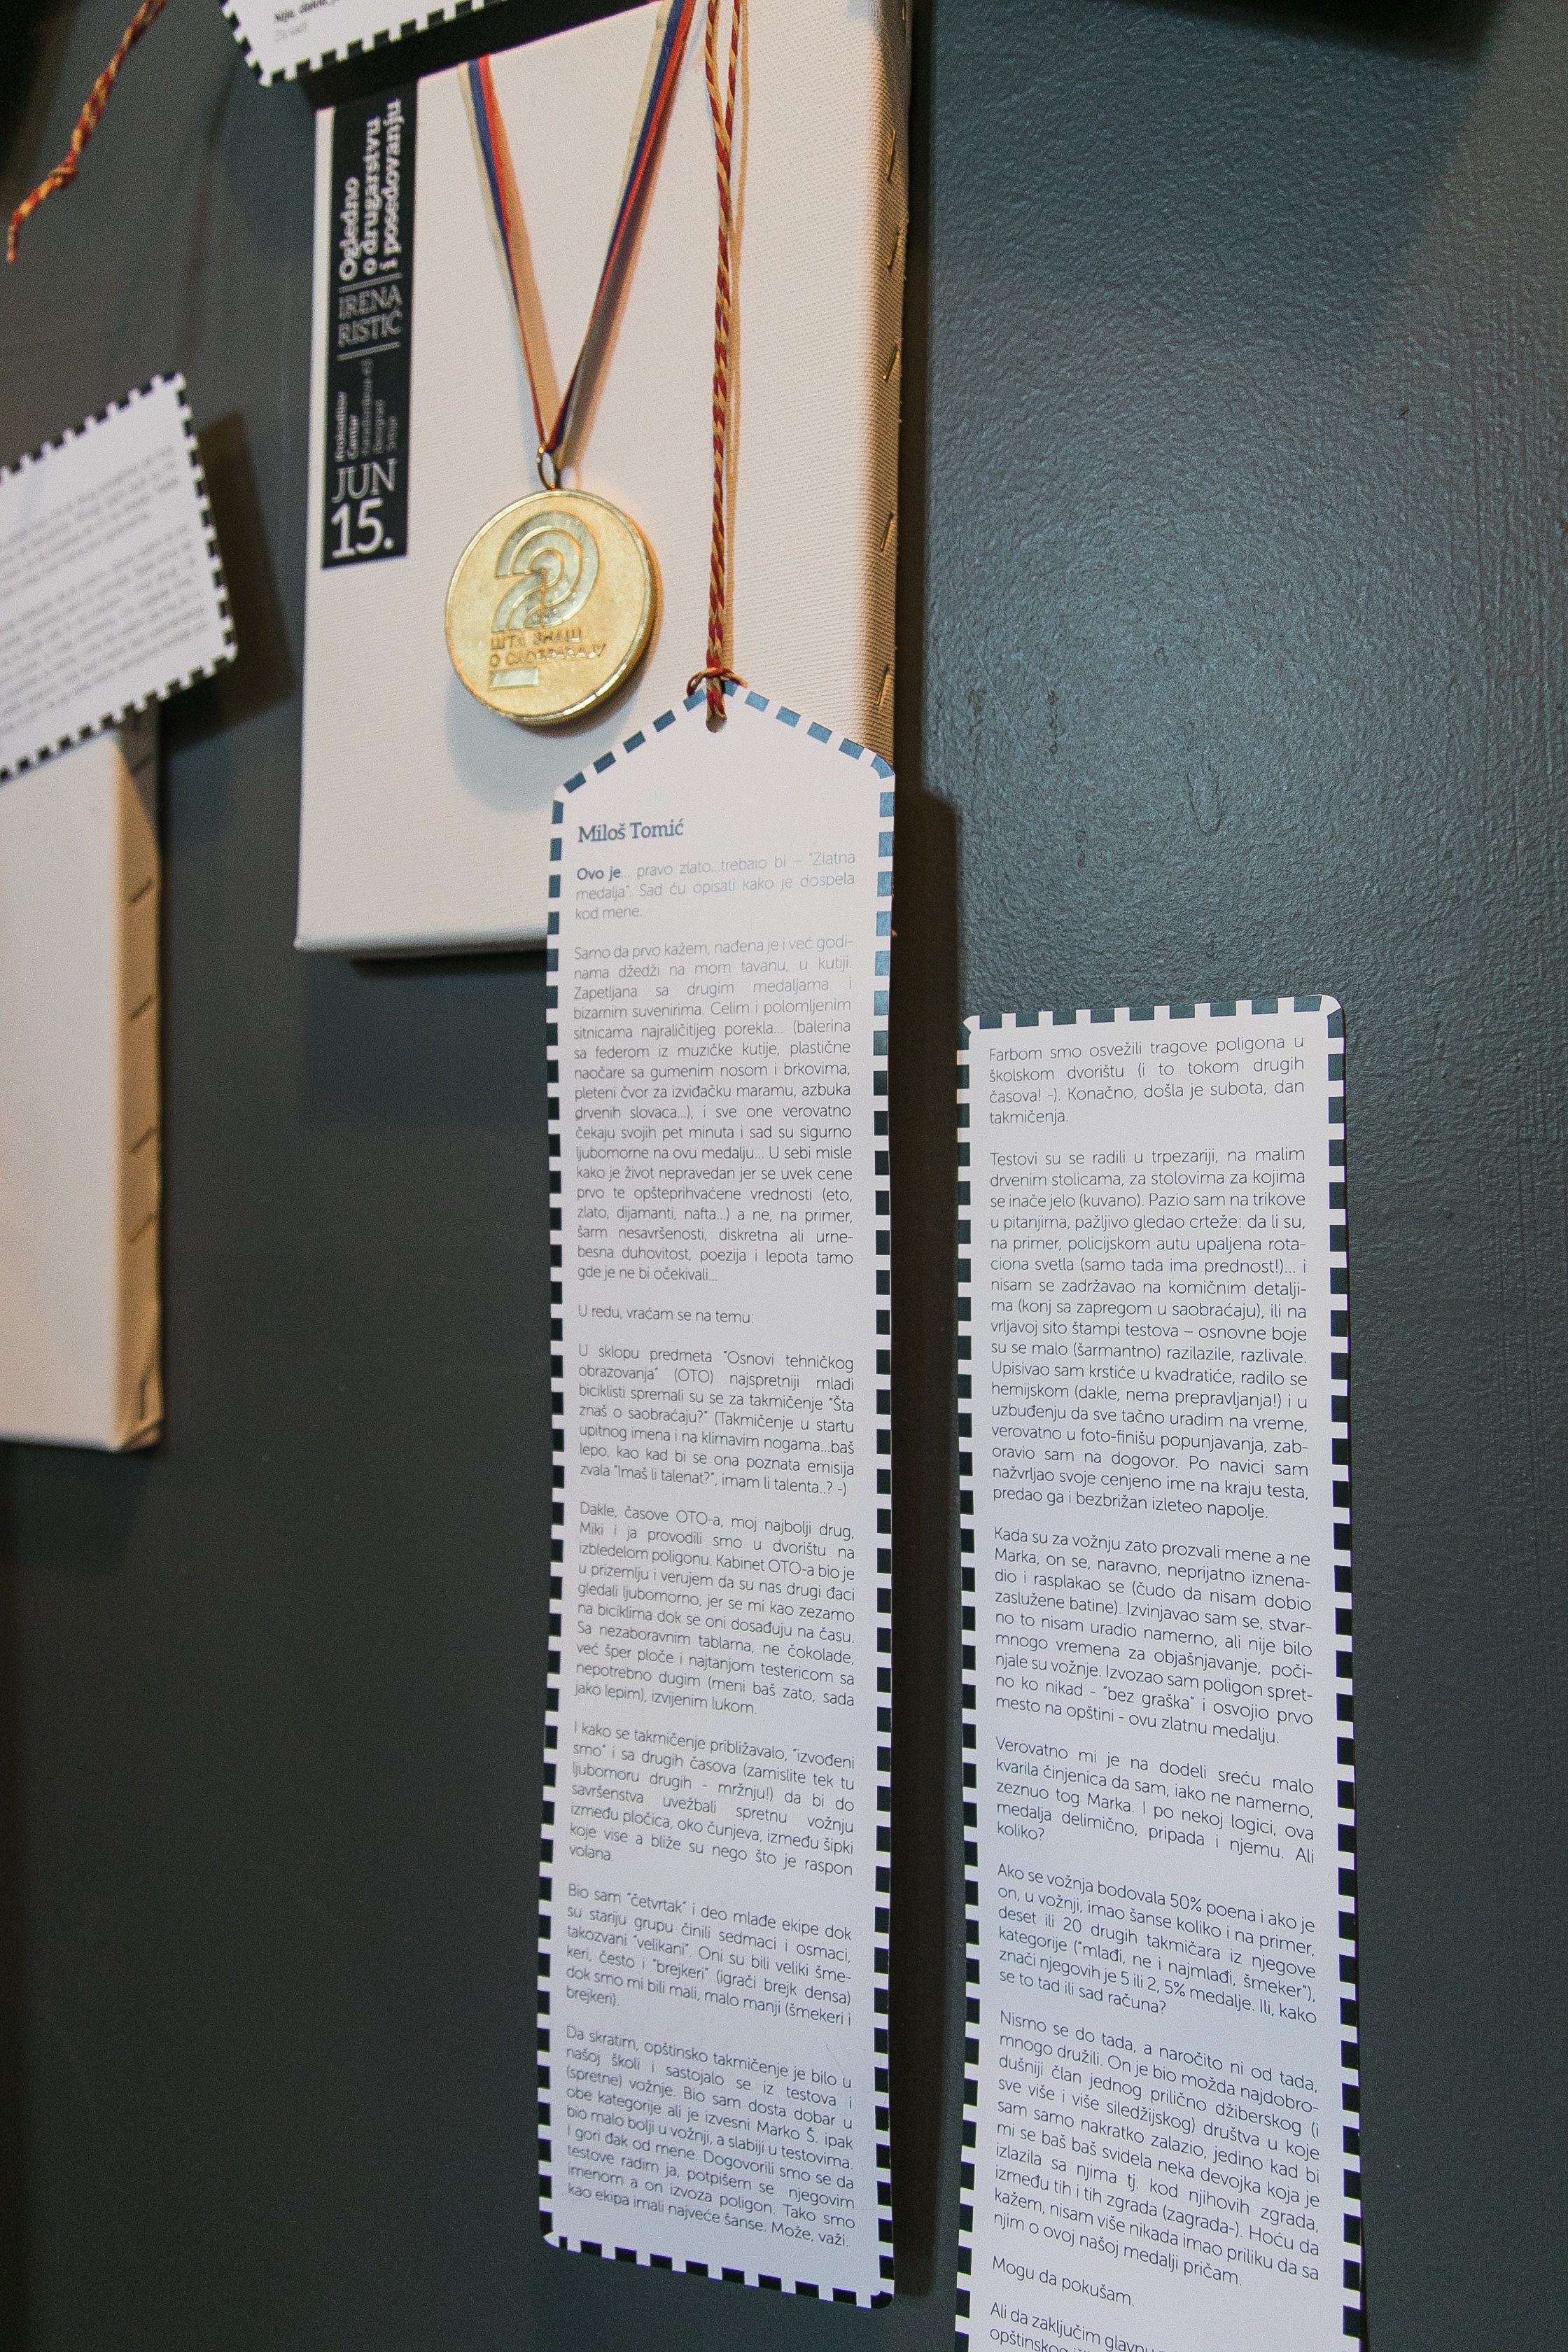 Ogledno
o drugarstvu
i posedovanju
IRENA
RISTIĆ
JUN
15.
ШТА ЗНАШ
О САОБРАЋАЈУ
Miloš Tomić
Ovo je... pravo zlato...trebalo bi – "Zlatna
medalja". Sad ću opisati kako je dospela
kod mene.
Samo da prvo kažem, nađena je i već godi-
nama džedži na mom tavanu, u kutiji.
Zapetljana sa drugim medaljama i
bizarnim suvenirima. Celim i polomljenim
sitnicama najraličitijeg porekla... (balerina
sa federom iz muzičke kutije, plastične
naočare sa gumenim nosom i brkovima,
pleteni čvor za izviđačku maramu, azbuka
drvenih slovaca...), i sve one verovatno
čekaju svojih pet minuta i sad su sigurno
ljubomorne na ovu medalju... U sebi misle
kako je život nepravedan jer se uvek cene
prvo te opšteprihvaćene vrednosti (eto,
zlato, dijamanti, nafta...) a ne, na primer,
šarm nesavršenosti, diskretna ali urne-
besna duhovitost, poezija i lepota tamo
gde je ne bi očekivali...
U redu, vraćam se na temu:
U sklopu predmeta "Osnovi tehničkog
obrazovanja" (OTO) najspretniji mladi
biciklisti spremali su se za takmičenje "Šta
znaš o saobraćaju?" (Takmičenje u startu
upitnog imena i na klimavim nogama...baš
lepo, kao kad bi se ona poznata emisija
zvala "Imaš li talenat?", imam li talenta..? -)
Dakle, časove OTO-a, moj najbolji drug,
Miki i ja provodili smo u dvorištu na
izbledelom poligonu. Kabinet OTO-a bio je
u prizemlju i verujem da su nas drugi đaci
gledali ljubomorno, jer se mi kao zezamo
na biciklima dok se oni dosađuju na času.
Sa nezaboravnim tablama, ne čokolade,
već šper ploče i najtanjom testericom sa
nepotrebno dugim (meni baš zato, sada
jako lepim), izvijenim lukom.
I kako se takmičenje približavalo, "izvođeni
smo" i sa drugih časova (zamislite tek tu
ljubomoru drugih - mržnju!) da bi do
savršenstva uvežbali spretnu vožnju
između pločica, oko čunjeva, između šipki
koje vise a bliže su nego što je raspon
volana.
Bio sam "četvrtak" i deo mlađe ekipe dok
su stariju grupu činili sedmaci i osmaci,
takozvani "velikani". Oni su bili veliki šme-
keri, često i "brejkeri" (igrači brejk densa)
dok smo mi bili mali, malo manji (šmekeri i
brejkeri).
Da skratim, opštinsko takmičenje je bilo u
našoj školi i sastojalo se iz testova i
(spretne) vožnje. Bio sam dosta dobar u
obe kategorije ali je izvesni Marko Š. ipak
bio malo bolji u vožnji, a slabiji u testovima.
I gori đak od mene. Dogovorili smo se da
testove radim ja, potpišem se njegovim
imenom a on izvoza poligon. Tako smo
kao ekipa imali najveće šanse. Može, važi.
Farbom smo osvežili tragove poligona u
školskom dvorištu (i to tokom drugih
časova! -). Konačno, došla je subota, dan
takmičenja.
Testovi su se radili u trpezariji, na malim
drvenim stolicama, za stolovima za kojima
se inače jelo (kuvano). Pazio sam na trikove
u pitanjima, pažljivo gledao crteže: da li su,
na primer, policijskom autu upaljena rota-
ciona svetla (samo tada ima prednost!)... i
nisam se zadržavao na komičnim detalji-
ma (konj sa zapregom u saobraćaju), ili na
vrljavoj sito štampi testova – osnovne boje
su se malo (šarmantno) razilazile, razlivale.
Upisivao sam krstiće u kvadratiće, radilo se
hemijskom (dakle, nema prepravljanja!) i u
uzbuđenju da sve tačno uradim na vreme,
verovatno u foto-finišu popunjavanja, zab-
oravio sam na dogovor. Po navici sam
nažvrljao svoje cenjeno ime na kraju testa,
predao ga i bezbrižan izleteo napolje.
Kada su za vožnju zato prozvali mene a ne
Marka, on se, naravno, neprijatno iznena-
dio i rasplakao se (čudo da nisam dobio
zaslužene batine). Izvinjavao sam se, stvar-
no to nisam uradio namerno, ali nije bilo
mnogo vremena za objašnjavanje, poči-
njale su vožnje. Izvozao sam poligon spret-
no ko nikad - "bez graška" i osvojio prvo
mesto na opštini - ovu zlatnu medalju.
Verovatno mi je na dodeli sreću malo
kvarila činjenica da sam, iako ne namerno,
zeznuo tog Marka. I po nekoj logici, ova
medalja delimično, pripada i njemu. Ali
koliko?
Ako se vožnja bodovala 50% poena i ako je
on, u vožnji, imao šanse koliko i na primer,
deset ili 20 drugih takmičara iz njegove
kategorije ("mlađi, ne i najmlađi, šmeker"),
znači njegovih je 5 ili 2, 5% medalje. Ili, kako
se to tad ili sad računa?
Nismo se do tada, a naročito ni od tada,
mnogo družili. On je bio možda najdobro-
dušniji član jednog prilično džiberskog (i
sve više i više siledžijskog) društva u koje
sam samo nakratko zalazio, jedino kad bi
mi se baš baš svidela neka devojka koja je
izlazila sa njima tj. kod njihovih zgrada,
između tih i tih zgrada (zagrada-). Hoću da
kažem, nisam više nikada imao priliku da sa
njim o ovoj našoj medalji pričam.
Mogu da pokušam.
Ali da zaključim